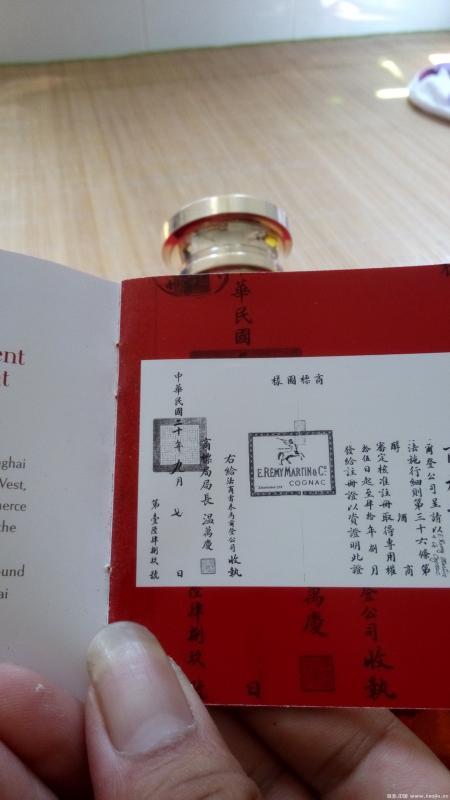 ent
t
ghai
West,
erce
the
ound
ai
華民國
商標圖樣
E. REMY MARTIN & Co.
COGNAC
爾登公司呈請以
法施行細則第三十六條第
酒商
審定核准註冊取得專用權
拾伍日起至肆拾年捌月
發給註冊證以資證明此證
右給法商雷米馬爾登公司收執
商標局局長溫萬慶
中華民國二十年九月七日
第壹陸肆捌玖號
陸肆捌玖號
日
萬慶
登公司收執
www.tuojiu.cc